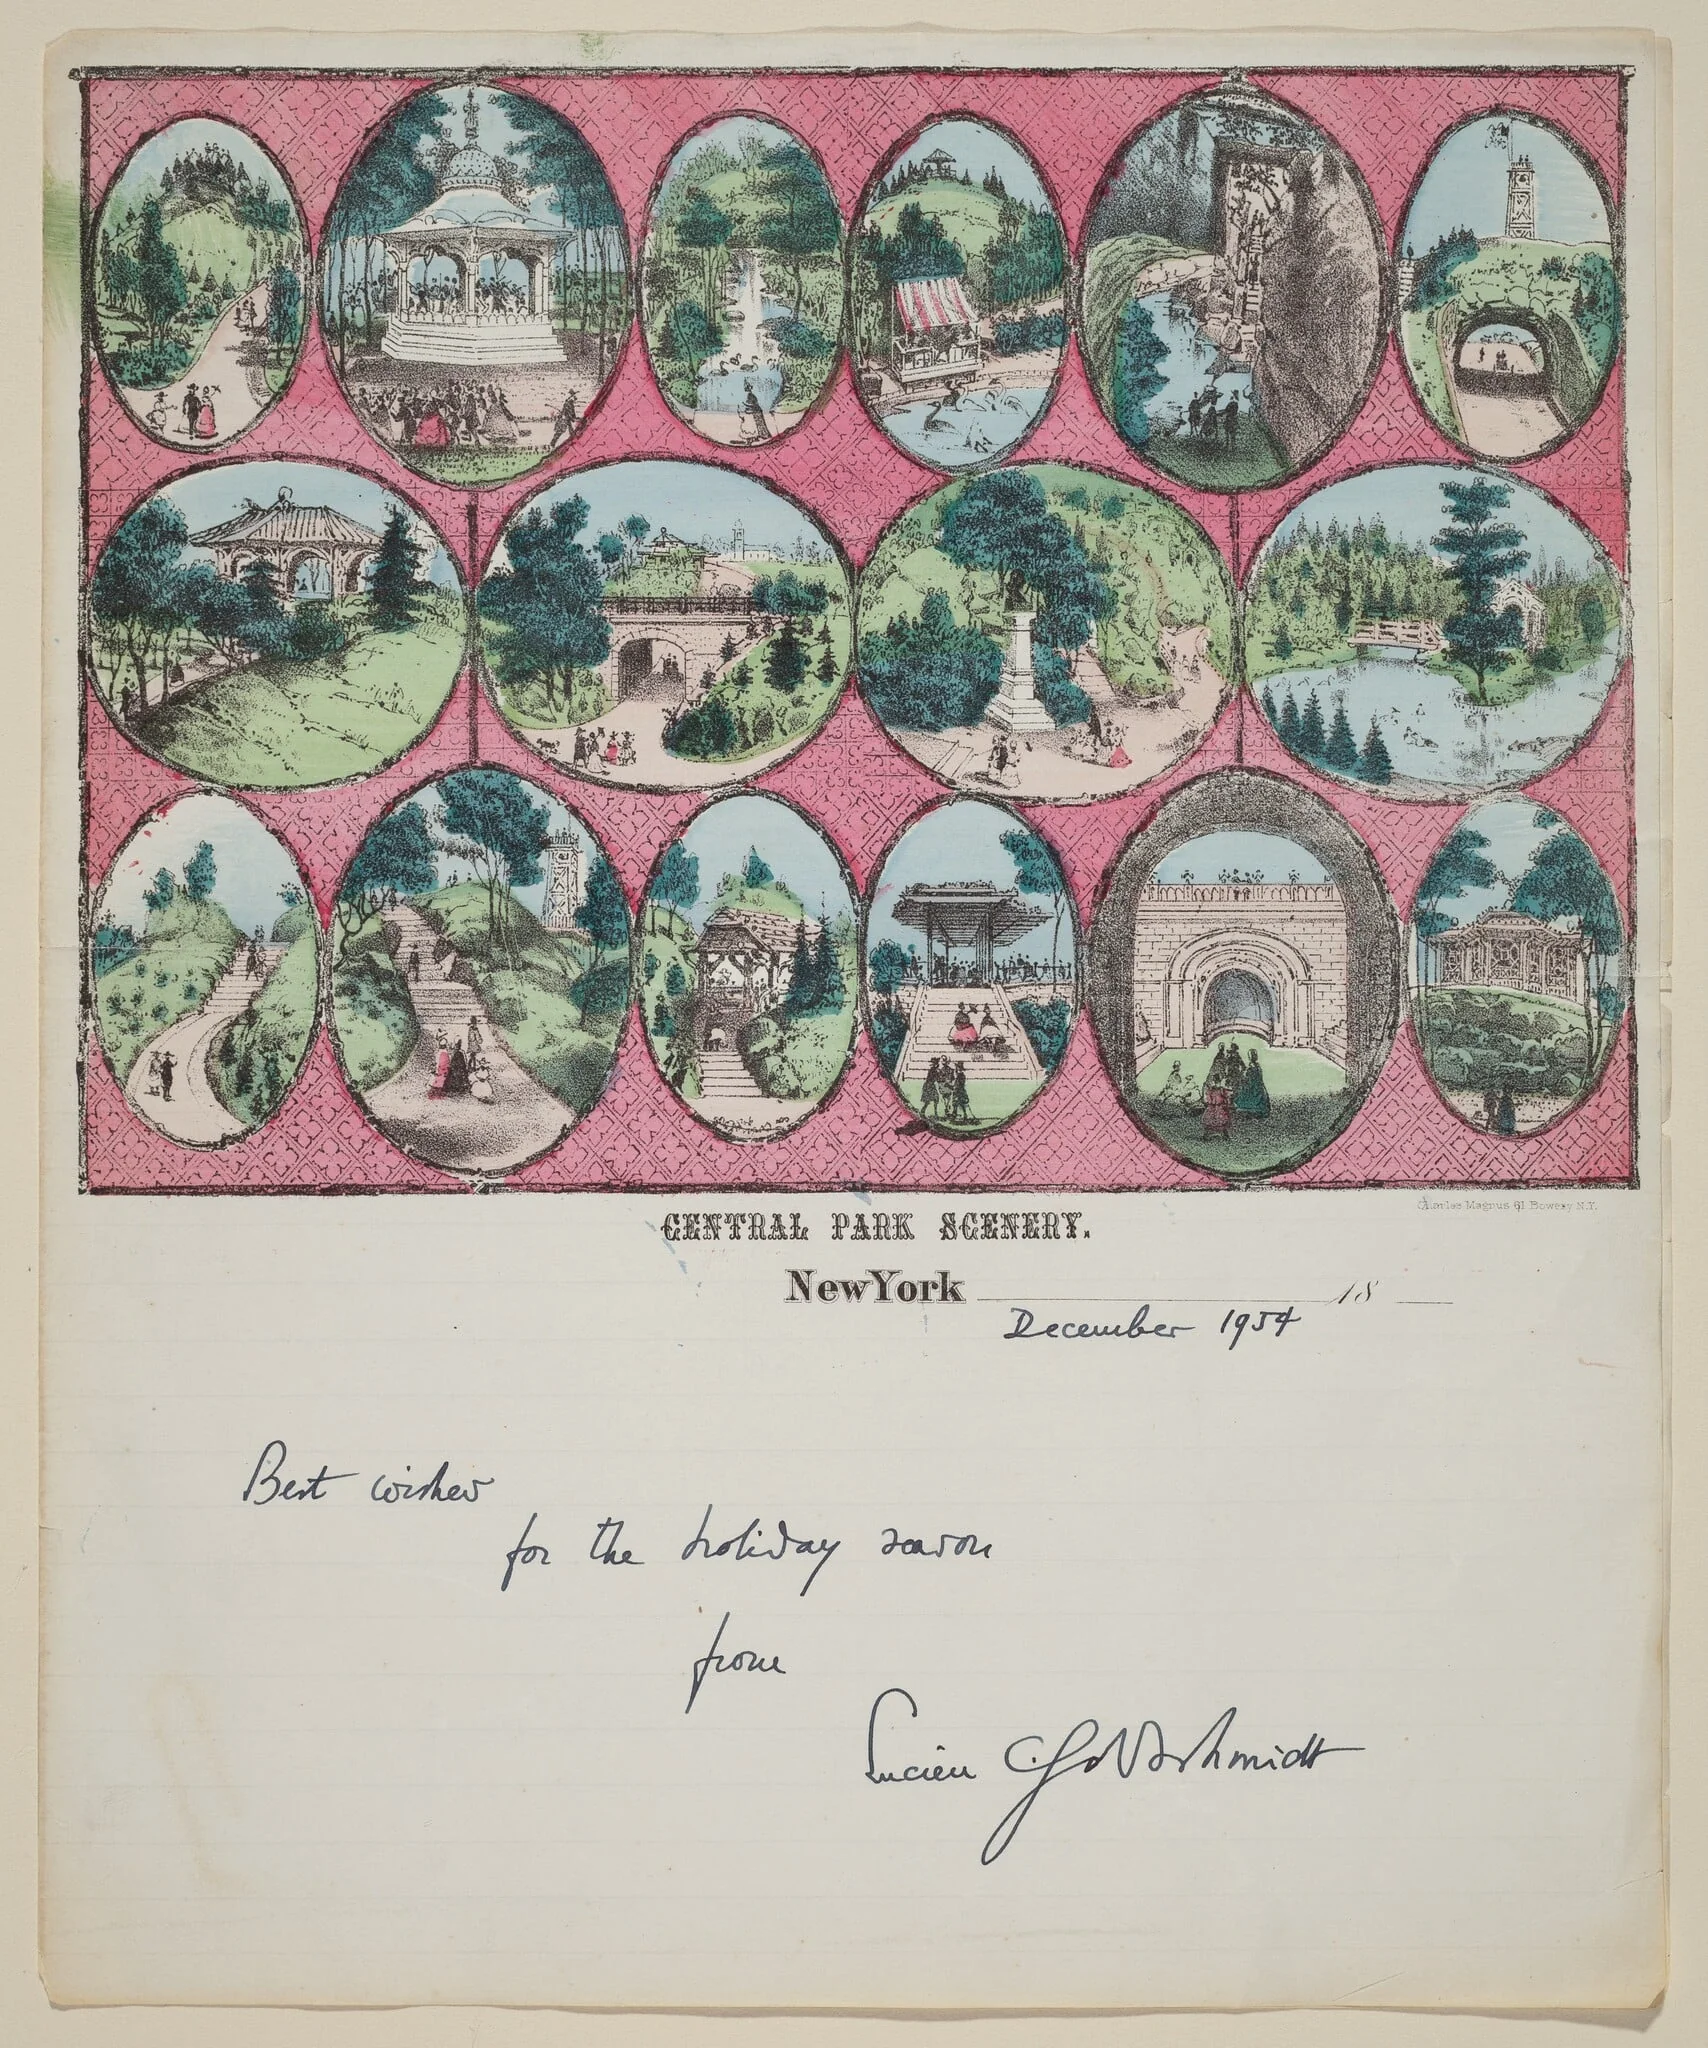 Charles Magnus 61 Bowery N.Y.
CENTRAL PARK SCENERY.
New York 18
December 1954
Best wishes
for the holiday season
from
Lucien Goldschmidt